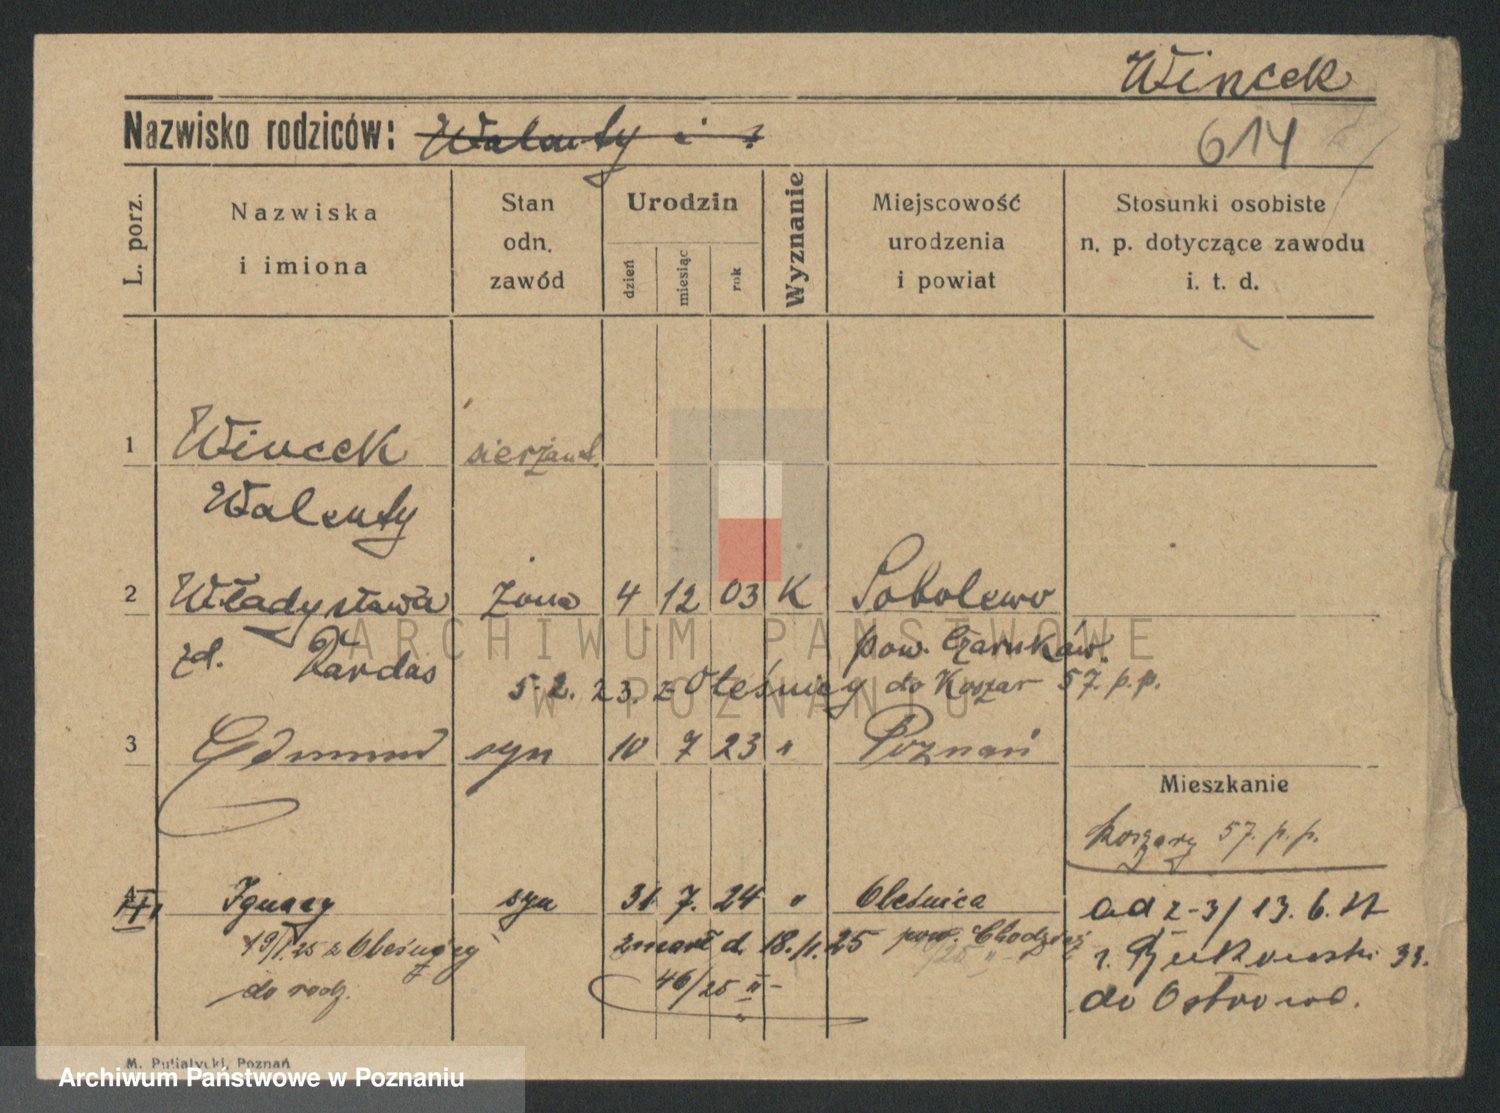 Wincek
Nazwisko rodziców: Walenty i ?
614
L. porz.
Nazwiska
i imiona
Stan
odn.
zawód
Urodzin
dzień
miesiąc
rok
Wyznanie
Miejscowość
urodzenia
i powiat
Stosunki osobiste
n. p. dotyczące zawodu
i. t. d.
1 Wincek sierżant
Walenty
2 Władysława żona 4 12 03 K Sobolewo
zd. Kardas pow. Czarnków.
5.2.23. z Oleśnicy do Koszar 57. p.p.
3 Edmund syn 10 7 23 " Poznań
Mieszkanie
Koszary 57. p.p.
Ignacy syn 31 7. 24 " Oleśnica
19/1.25 z Oleśnicy zmarł d. 18./1.25 pow. Chodzież
do rodz. 46/25 II
ad z-3/ 13.6.
33.
do Ostrowa.
M. Putiatycki, Poznań
ARCHIWUM PAŃSTWOWE
W POZNANIU
Archiwum Państwowe w Poznaniu